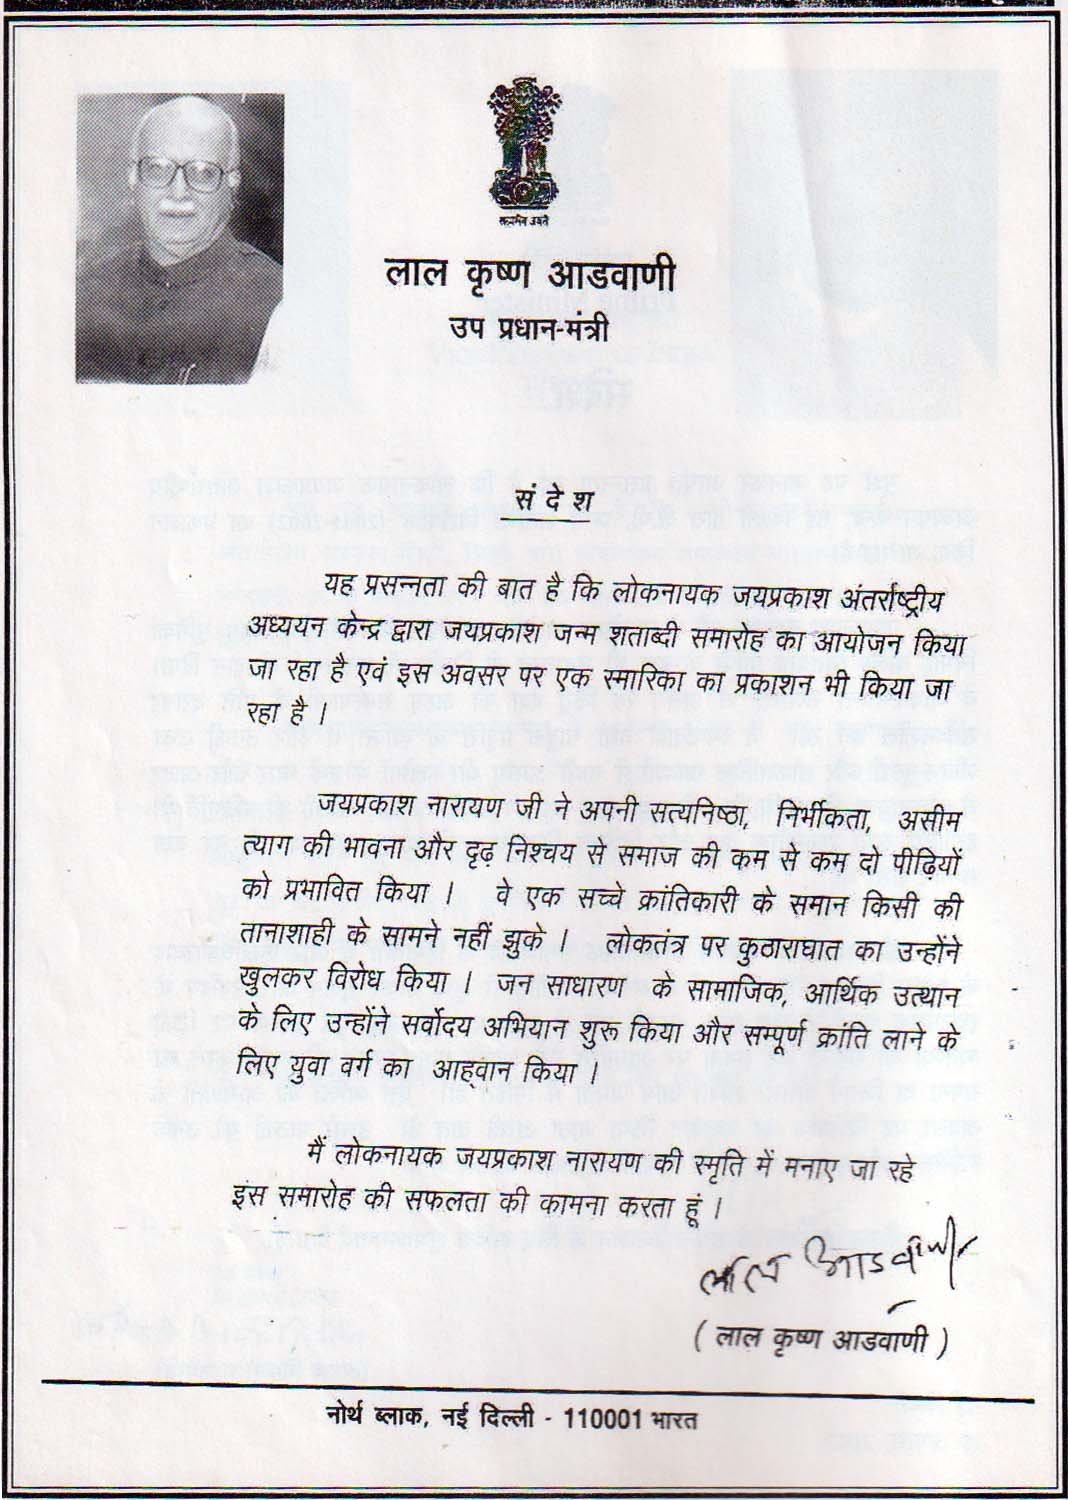 सत्यमेव जयते
लाल कृष्ण आडवाणी
उप प्रधान-मंत्री
सं दे श
यह प्रसन्नता की बात है कि लोकनायक जयप्रकाश अंतर्राष्ट्रीय
अध्ययन केन्द्र द्वारा जयप्रकाश जन्म शताब्दी समारोह का आयोजन किया
जा रहा है एवं इस अवसर पर एक स्मारिका का प्रकाशन भी किया जा
रहा है ।
जयप्रकाश नारायण जी ने अपनी सत्यनिष्ठा, निर्भीकता, असीम
त्याग की भावना और दृढ़ निश्चय से समाज की कम से कम दो पीढ़ियों
को प्रभावित किया । वे एक सच्चे क्रांतिकारी के समान किसी की
तानाशाही के सामने नहीं झुके । लोकतंत्र पर कुठाराघात का उन्होंने
खुलकर विरोध किया । जन साधारण के सामाजिक, आर्थिक उत्थान
के लिए उन्होंने सर्वोदय अभियान शुरू किया और सम्पूर्ण क्रांति लाने के
लिए युवा वर्ग का आह्वान किया ।
मैं लोकनायक जयप्रकाश नारायण की स्मृति में मनाए जा रहे
इस समारोह की सफलता की कामना करता हूं ।
लाल आडवाणी
( लाल कृष्ण आडवाणी )
नोर्थ ब्लाक, नई दिल्ली - 110001 भारत